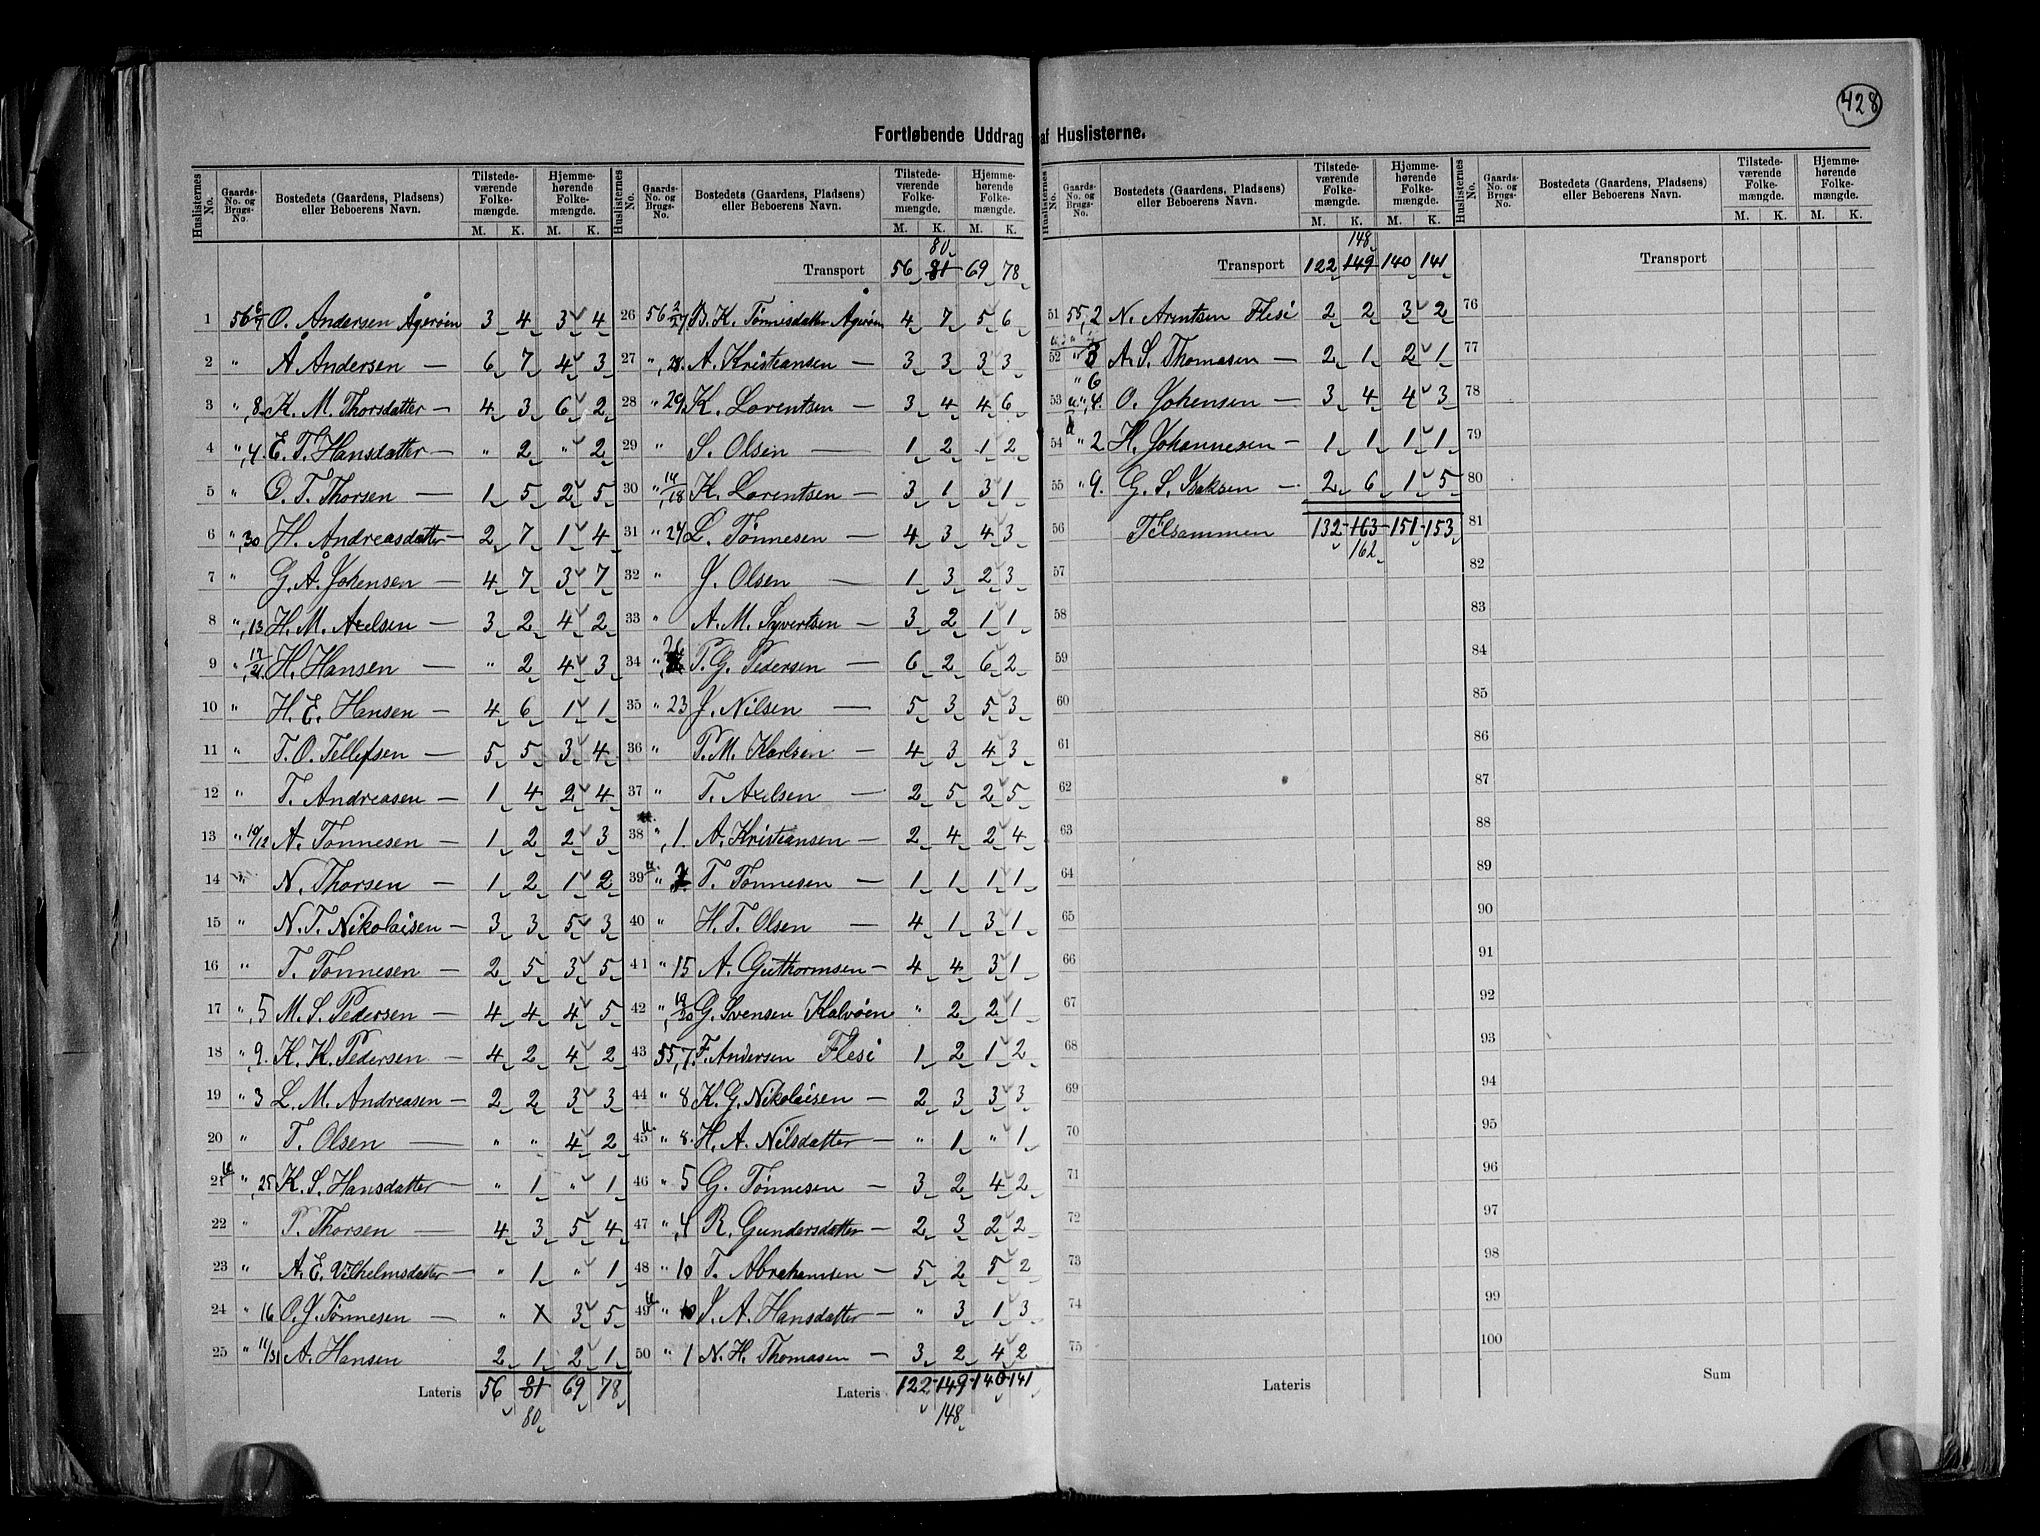 428
Fortløbende Uddrag af Huslisterne.
Huslisternes No. | Gaards-No. og Brugs-No. | Bostedets (Gaardens, Pladsens) eller Beboerens Navn. | Tilstedeværende Folkemængde. M. K. | Hjemmehørende Folkemængde. M. K.
1 56 6/7 O. Andersen Ågerøen 3 4 3 4
2 " Å Andersen — 6 7 4 3
3 ", 8 K. M. Thorsdatter — 4 3 6 2
4 ", 4 E. T. Hansdatter — " 2 " 2
5 " O. T. Thorsen — 1 5 2 5
6 ", 30 H. Andreasdatter — 2 7 1 4
7 " G. Å. Johensen — 4 7 3 7
8 ", 13 H. M. Axelsen — 3 2 4 2
9 ", 17/21 H. Hansen — " 2 4 3
10 " H. E. Hansen — 4 6 1 1
11 " T. O. Tellefsen — 5 5 3 4
12 " T. Andreasen — 1 4 2 4
13 " 10/12 A. Tonnesen — 1 2 2 3
14 " N. Thorsen — 1 2 1 2
15 " N. T. Nikolaisen — 3 3 5 3
16 " T. Tonnesen — 2 5 3 5
17 ", 5 M. S. Pedersen — 4 4 4 5
18 ", 9. K. K. Pedersen — 4 2 4 2
19 " 3 L. M. Andreasen — 2 2 3 3
20 " T. Olsen — " " 4 2
21 ", 25 K. S. Hansdatter — " 1 " 1
22 " P. Thorsen — 4 3 5 4
23 " A. E. Vilhelmsdatter — " 1 " 1
24 " 16 O. J. Tønnesen — " X 3 5
25 " 11/31 A. Hansen 2 1 2 1
Lateris 56 81 69 78
80
80
Transport 56 81 69 78
26 56 2/27 B. K. Tønnisdatter Ågerøen 4 7 5 6
27 ", 28. A. Kristiansen — 3 3 3 3
28 " 29 K. Lorentsen — 3 4 4 6
29 " S. Olsen — 1 2 1 2
30 " 14/18 K. Lorentsen — 3 1 3 1
31 " 24 L. Tønnesen — 4 3 4 3
32 " J. Olsen — 1 3 2 3
33 " A. M. Syvertsen — 3 2 1 1
34 " P. G. Pedersen — 6 2 6 2
35 " 23 J. Nilsen — 5 3 5 3
36 " P. M. Karlsen — 4 3 4 3
37 " T. Axelsen — 2 5 2 5
38 ", 1. A. Kristiansen — 2 4 2 4
39 " T. Tonnesen — 1 1 1 1
40 " H. T. Olsen — 4 1 3 1
41 " 15 A. Guthormsen — 4 4 3 1
42 ", 19/20 G. Svensen Kalvøen " 2 2 1
43 55, 7. F. Andersen Flesi 1 2 1 2
44 " 8 K. G. Nikolaisen — 2 3 3 3
45 " 8. H. A. Nilsdatter — " 1 " 1
46 " 5 G. Tønnesen — 3 2 4 2
47 ", 4 R. Gundersdatter — 2 3 2 2
48 " 10 T. Abrahamsen — 5 2 5 2
49 " 10 S. A. Hansdatter — " 3 1 3
50 " 1 N. H. Thomasen — 3 2 4 2
Lateris 122 149 140 141
148
148
Transport 122 149 140 141
51 55, 2 N. Arntsen Flesi 2 2 3 2
52 " 3 A. S. Thomasen — 2 1 2 1
" 6
53 ", 4. O. Johensen — 3 4 4 3
54 " 2 H. Johannesen — 1 1 1 1
55 " 9. G. S. Isaksen — 2 6 1 5
56 Tilsammen 132 163 151 153
162
57
58
59
60
61
62
63
64
65
66
67
68
69
70
71
72
73
74
75
Lateris
Transport
76
77
78
79
80
81
82
83
84
85
86
87
88
89
90
91
92
93
94
95
96
97
98
99
100
Sum